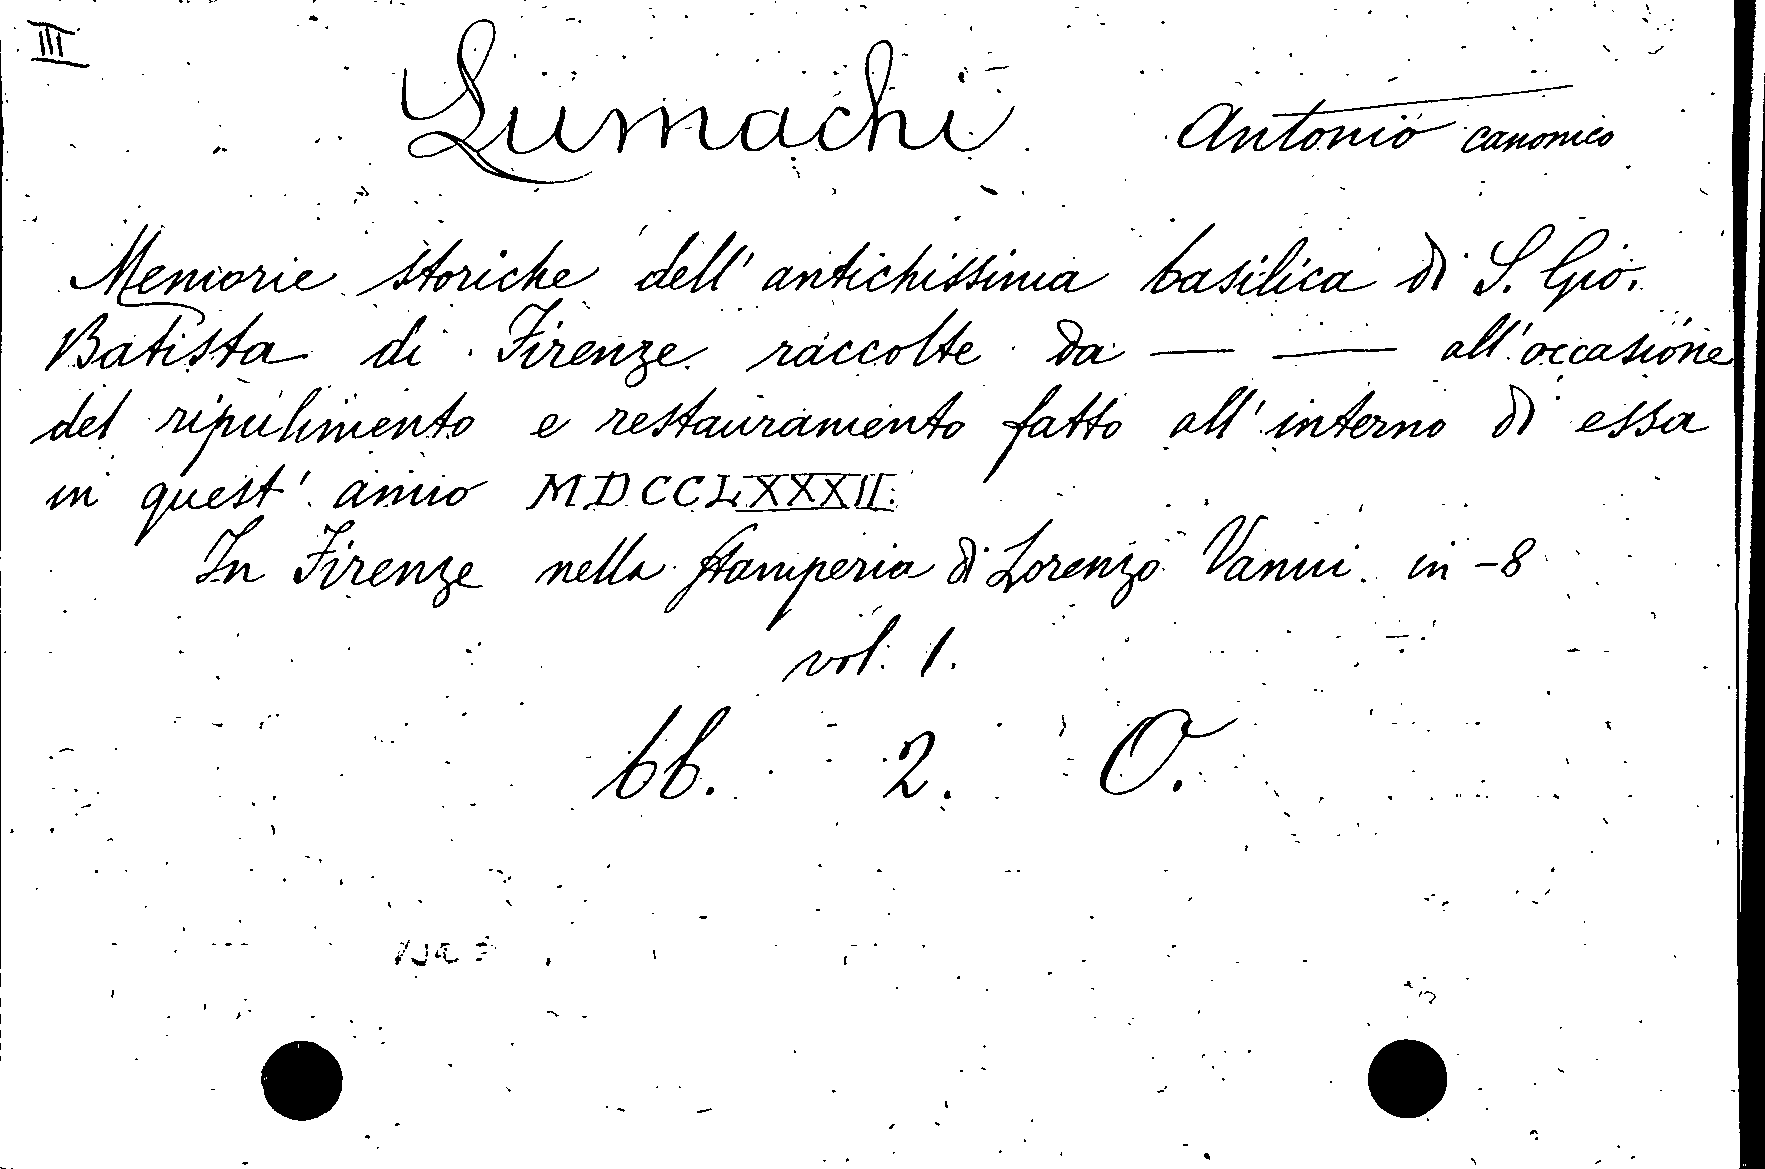 III
Lumachi Antonio canonico
Memorie storiche dell' antichissima basilica di S. Gio.
Batista di Firenze raccolte da — — all' occasione
del ripulimento e restauramento fatto all' interno di essa
in quest' anno MDCCLXXXII.
In Firenze nella stamperia di Lorenzo Vanni in-8
vol. 1.
bb. 2. O.